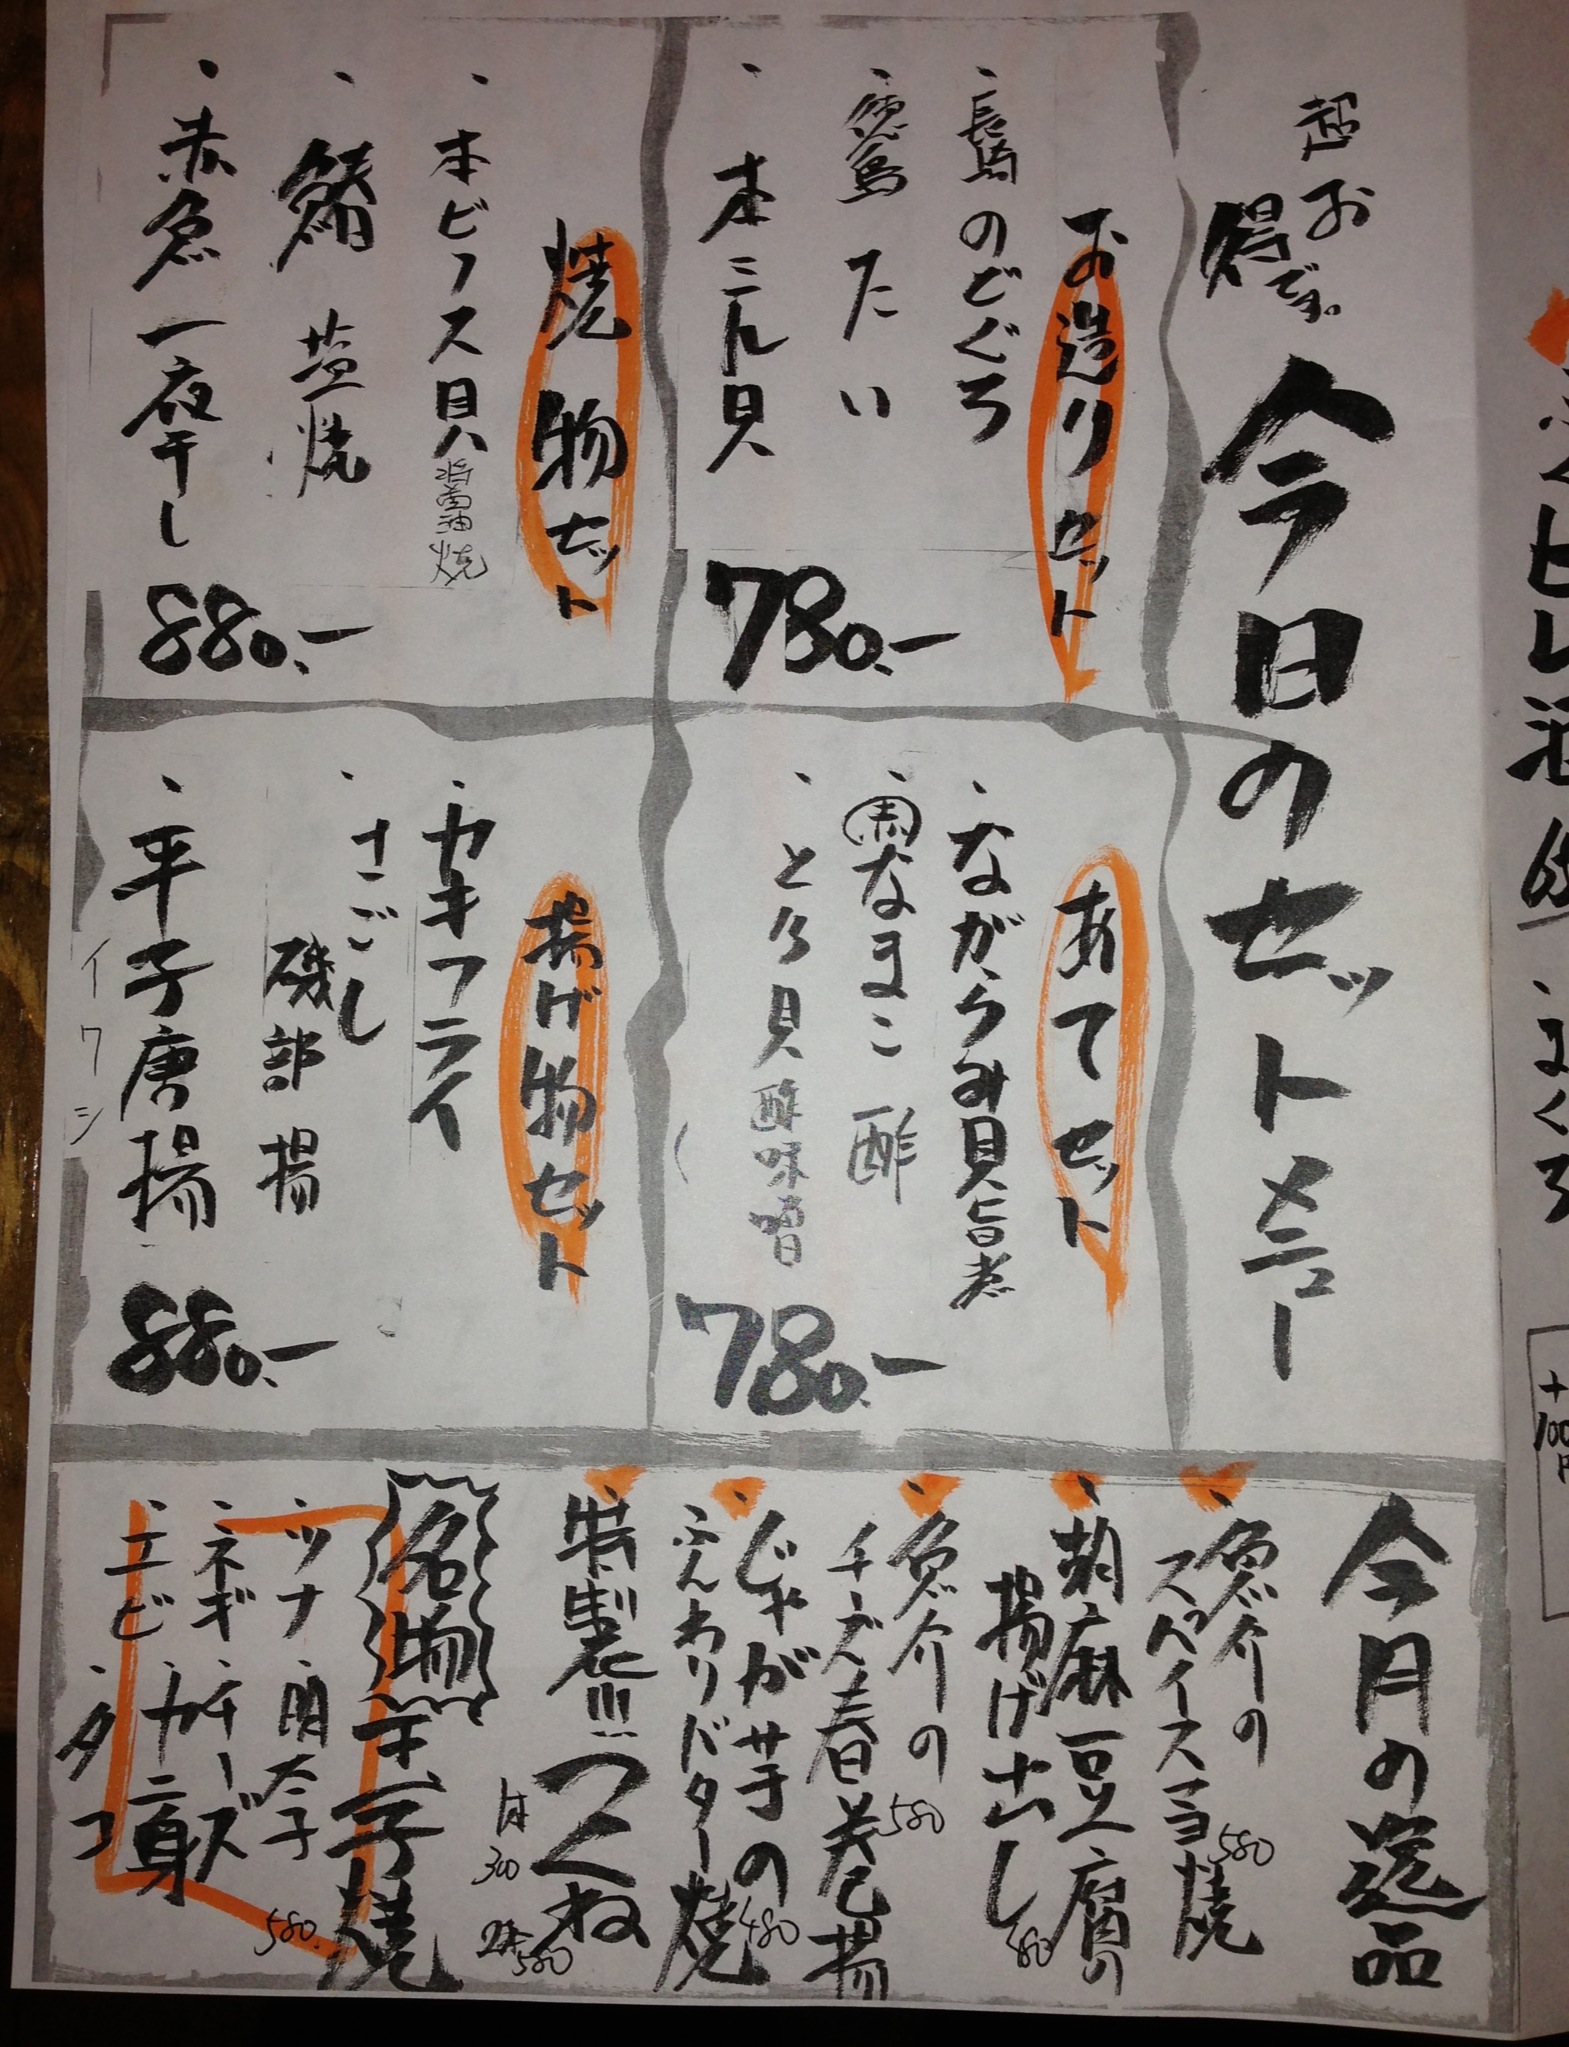 超お
得です。
今日のセットメニュー
お造りセット
・長崎のどぐろ
・徳島たい
・本ミル貝
780.-
焼物セット
・本ビノス貝醤油焼
・鰆塩焼
・赤魚一夜干し
880.-
あてセット
・ながらみ貝旨煮
・なまこ酢
・とり貝酢味噌
780.-
揚げ物セット
・カキフライ
・さごし
磯部揚
・平子唐揚
イワシ
880.-
今月の逸品
・魚介の
スペイース玉焼
580
・胡麻豆腐の
揚げ出し
・魚介の
チーズ春巻揚
580
・じゃが芋の
ふんわりバター焼
480
・特製!!!つくね
1本
300
2本
580
名物玉子焼
580.
・ツナ・明太子
・ネギ・チーズ
・エビ・カニ身
・タコ
ヒレ酒
・まぐろ
+100円